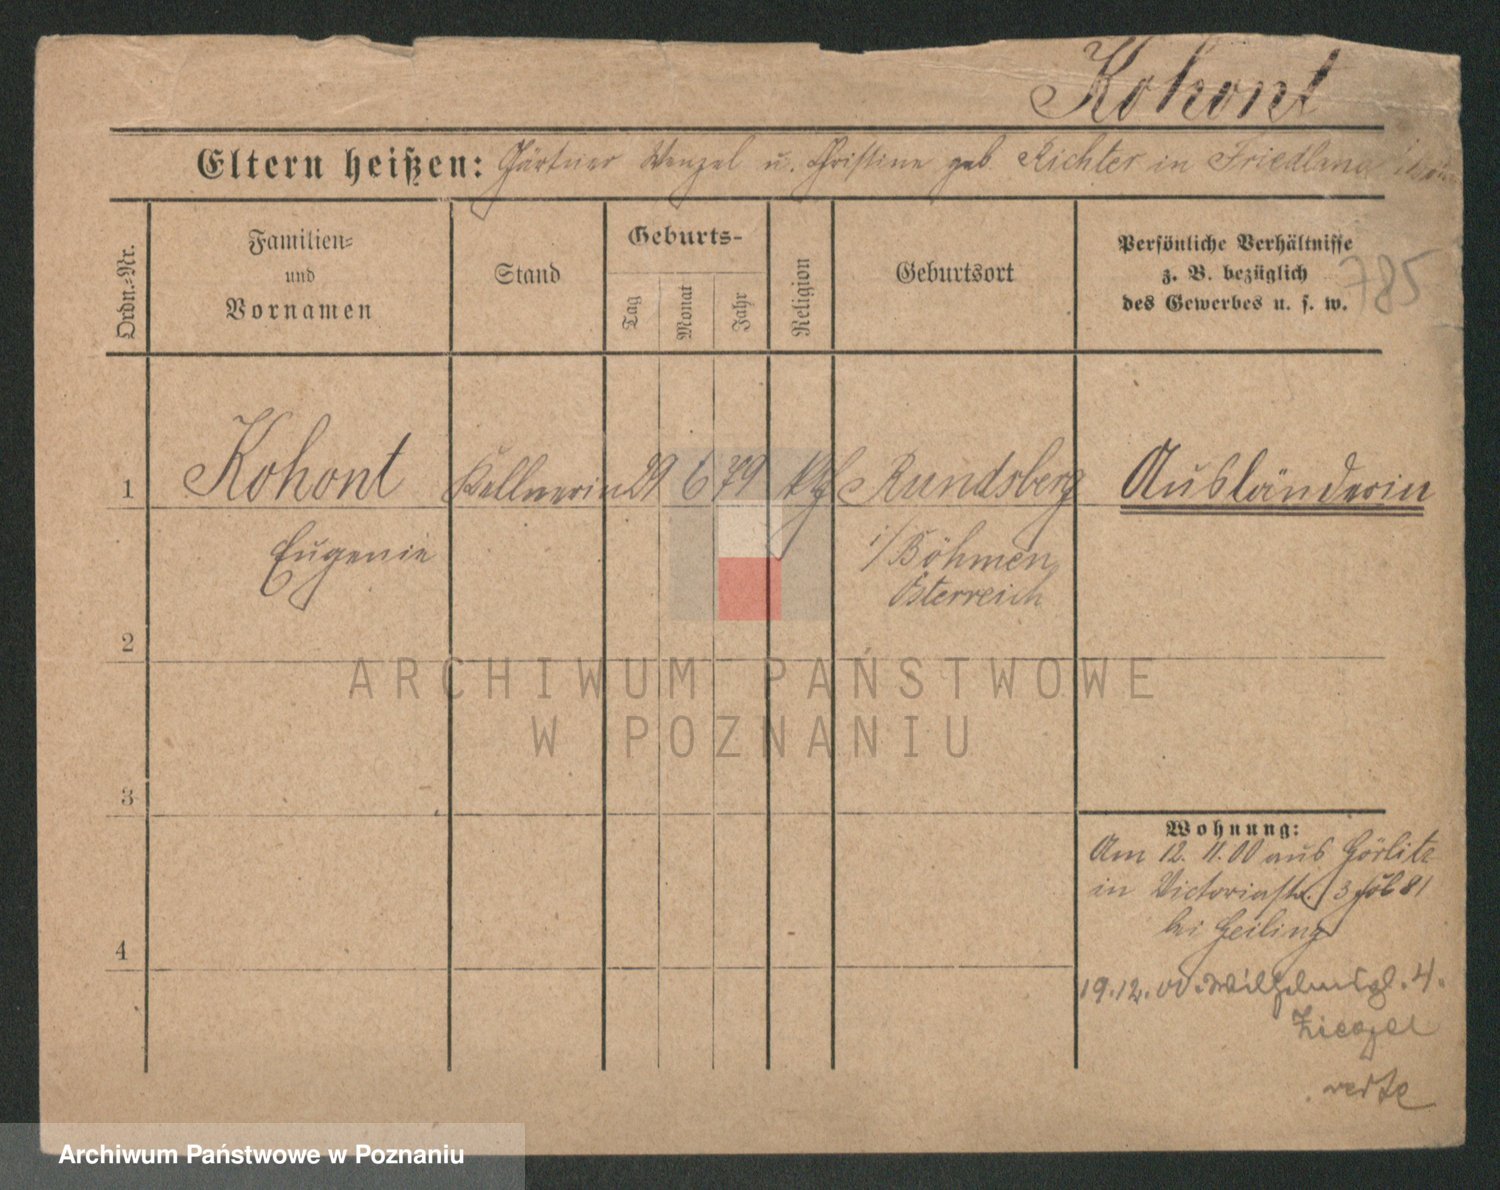 Kohont
Eltern heißen: Gärtner Wenzel u. Christine geb Richter in Friedland
Ordn.-Nr.
Familien-
und
Vornamen
Stand
Geburts-
Tag
Monat
Jahr
Religion
Geburtsort
Persönliche Verhältnisse
z. B. bezüglich
des Gewerbes u. s. w.
785
1 Kohont Kellnerin 29 6 79 Rundsberg Ausländerin
Eugenie i/Böhmen
Österreich
2
3
4
Wohnung:
Am 12. 11. 00 aus Görlitz
in Victoriastr. 13
bei Heiling
19.12.00. Wilhelmspl. 4.
Ziegel
verte
ARCHIWUM PAŃSTWOWE
W POZNANIU
Archiwum Państwowe w Poznaniu